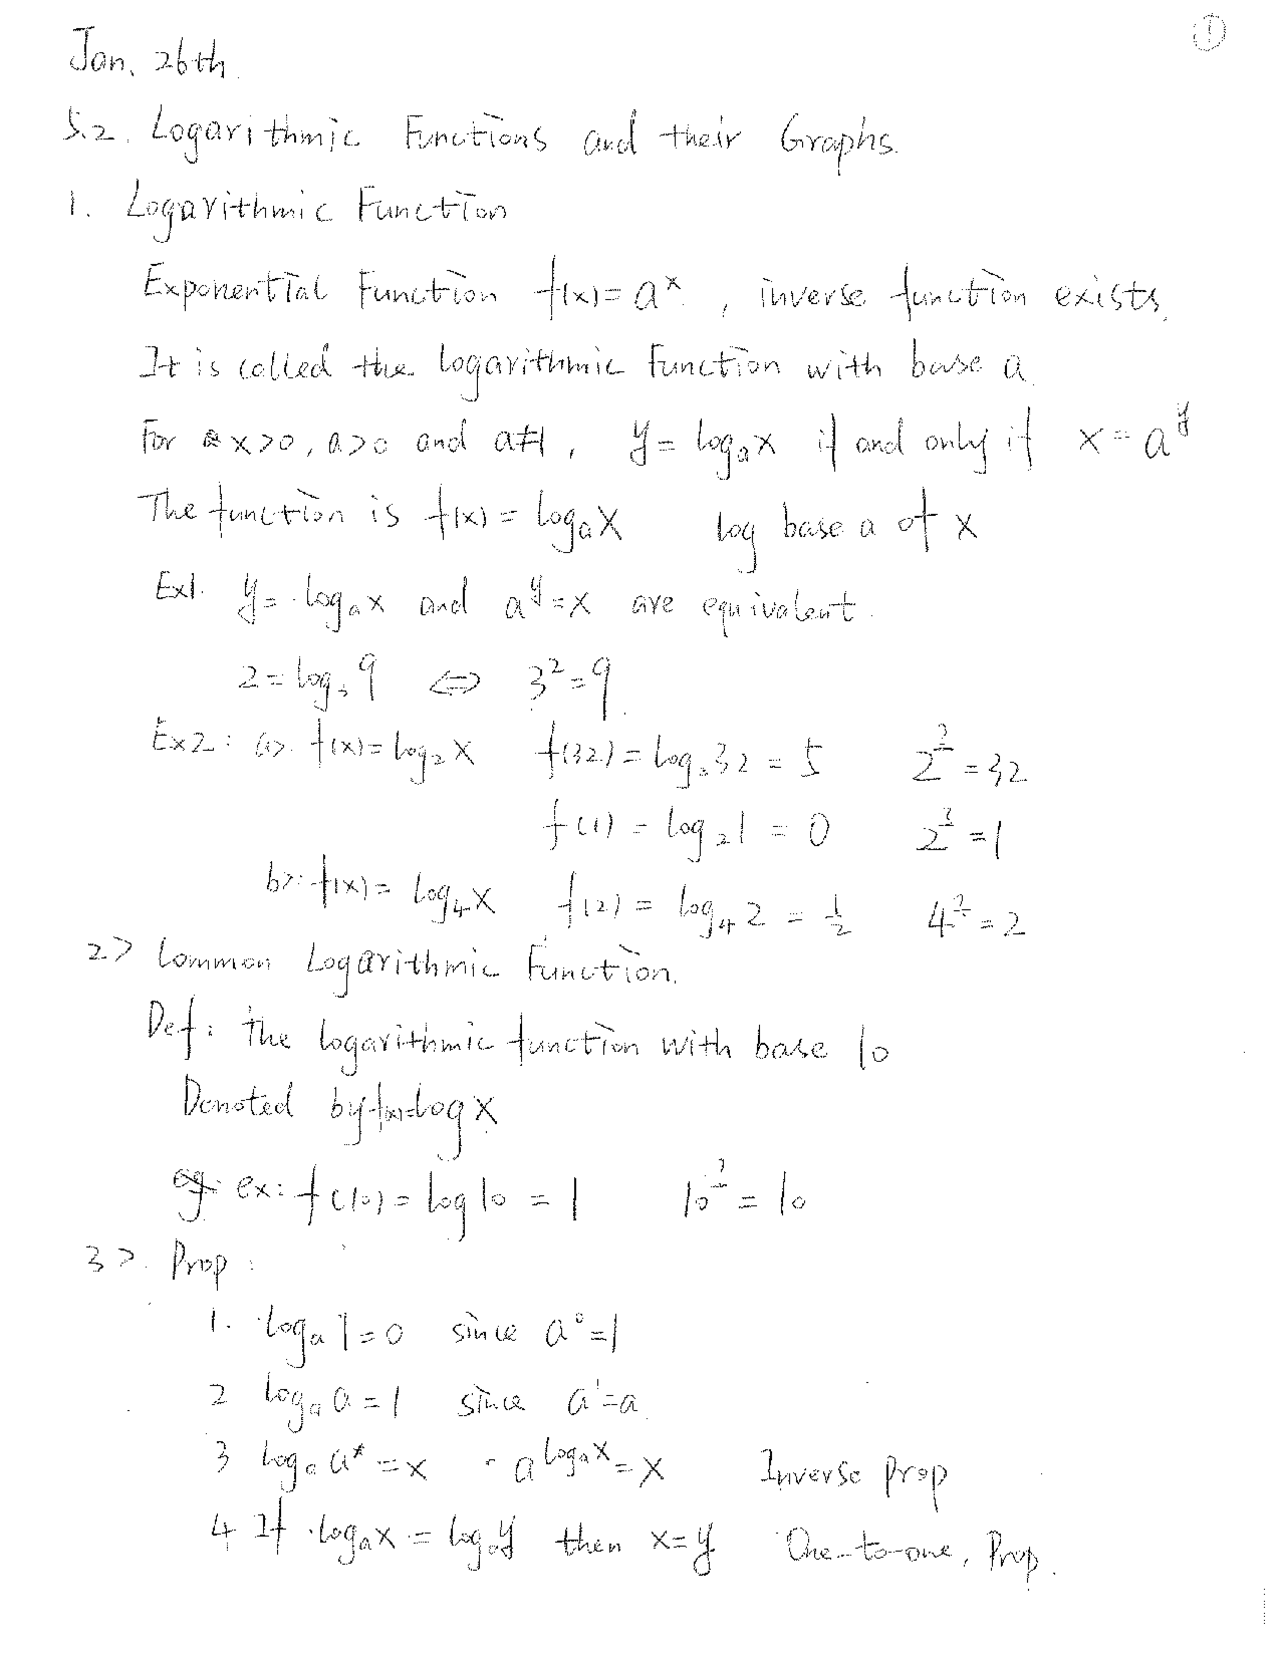 ①
Jan. 26th.
5.2. Logarithmic Functions and their Graphs.
1. Logarithmic Function
Exponential Function f(x)=aˣ, inverse function exists.
It is called the logarithmic function with base a
For x>0, a>0 and a≠1, y=logₐx if and only if x=a^y
The function is f(x)=logₐx log base a of x
Ex1. y=logₐx and a^y=x are equivalent.
2=log₃9 ⇔ 3²=9.
Ex2: a>. f(x)=log₂x f(32)=log₂32=5 2^?=32
f(1)=log₂1=0 2^?=1
b>: f(x)=log₄x f(2)=log₄2=1/2 4^?=2
2> Common Logarithmic Function.
Def: the logarithmic function with base 10
Denoted by f(x)=logx
eg. ex: f(10)=log10=1 10^?=10
3>. Prop:
1. logₐ1=0 since a⁰=1
2 logₐa=1 since a¹=a
3 logₐaˣ=x a^(logₐx)=x Inverse Prop
4 If logₐx=logₐy then x=y One-to-one, Prop.